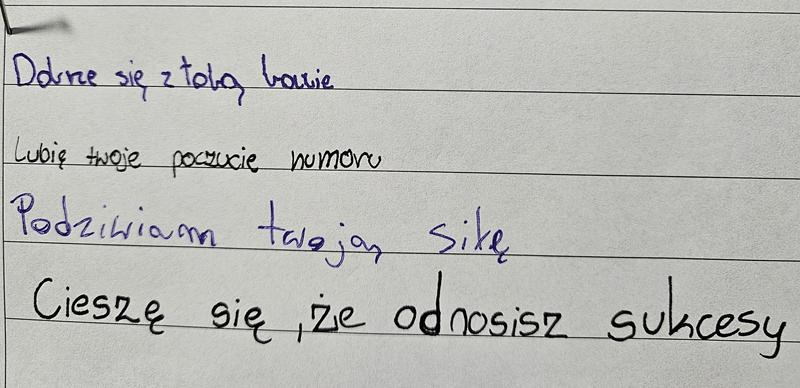 Dobrze się z tobą bawię
Lubię twoje poczucie humoru
Podziwiam twoją siłę
Cieszę się, że odnosisz sukcesy